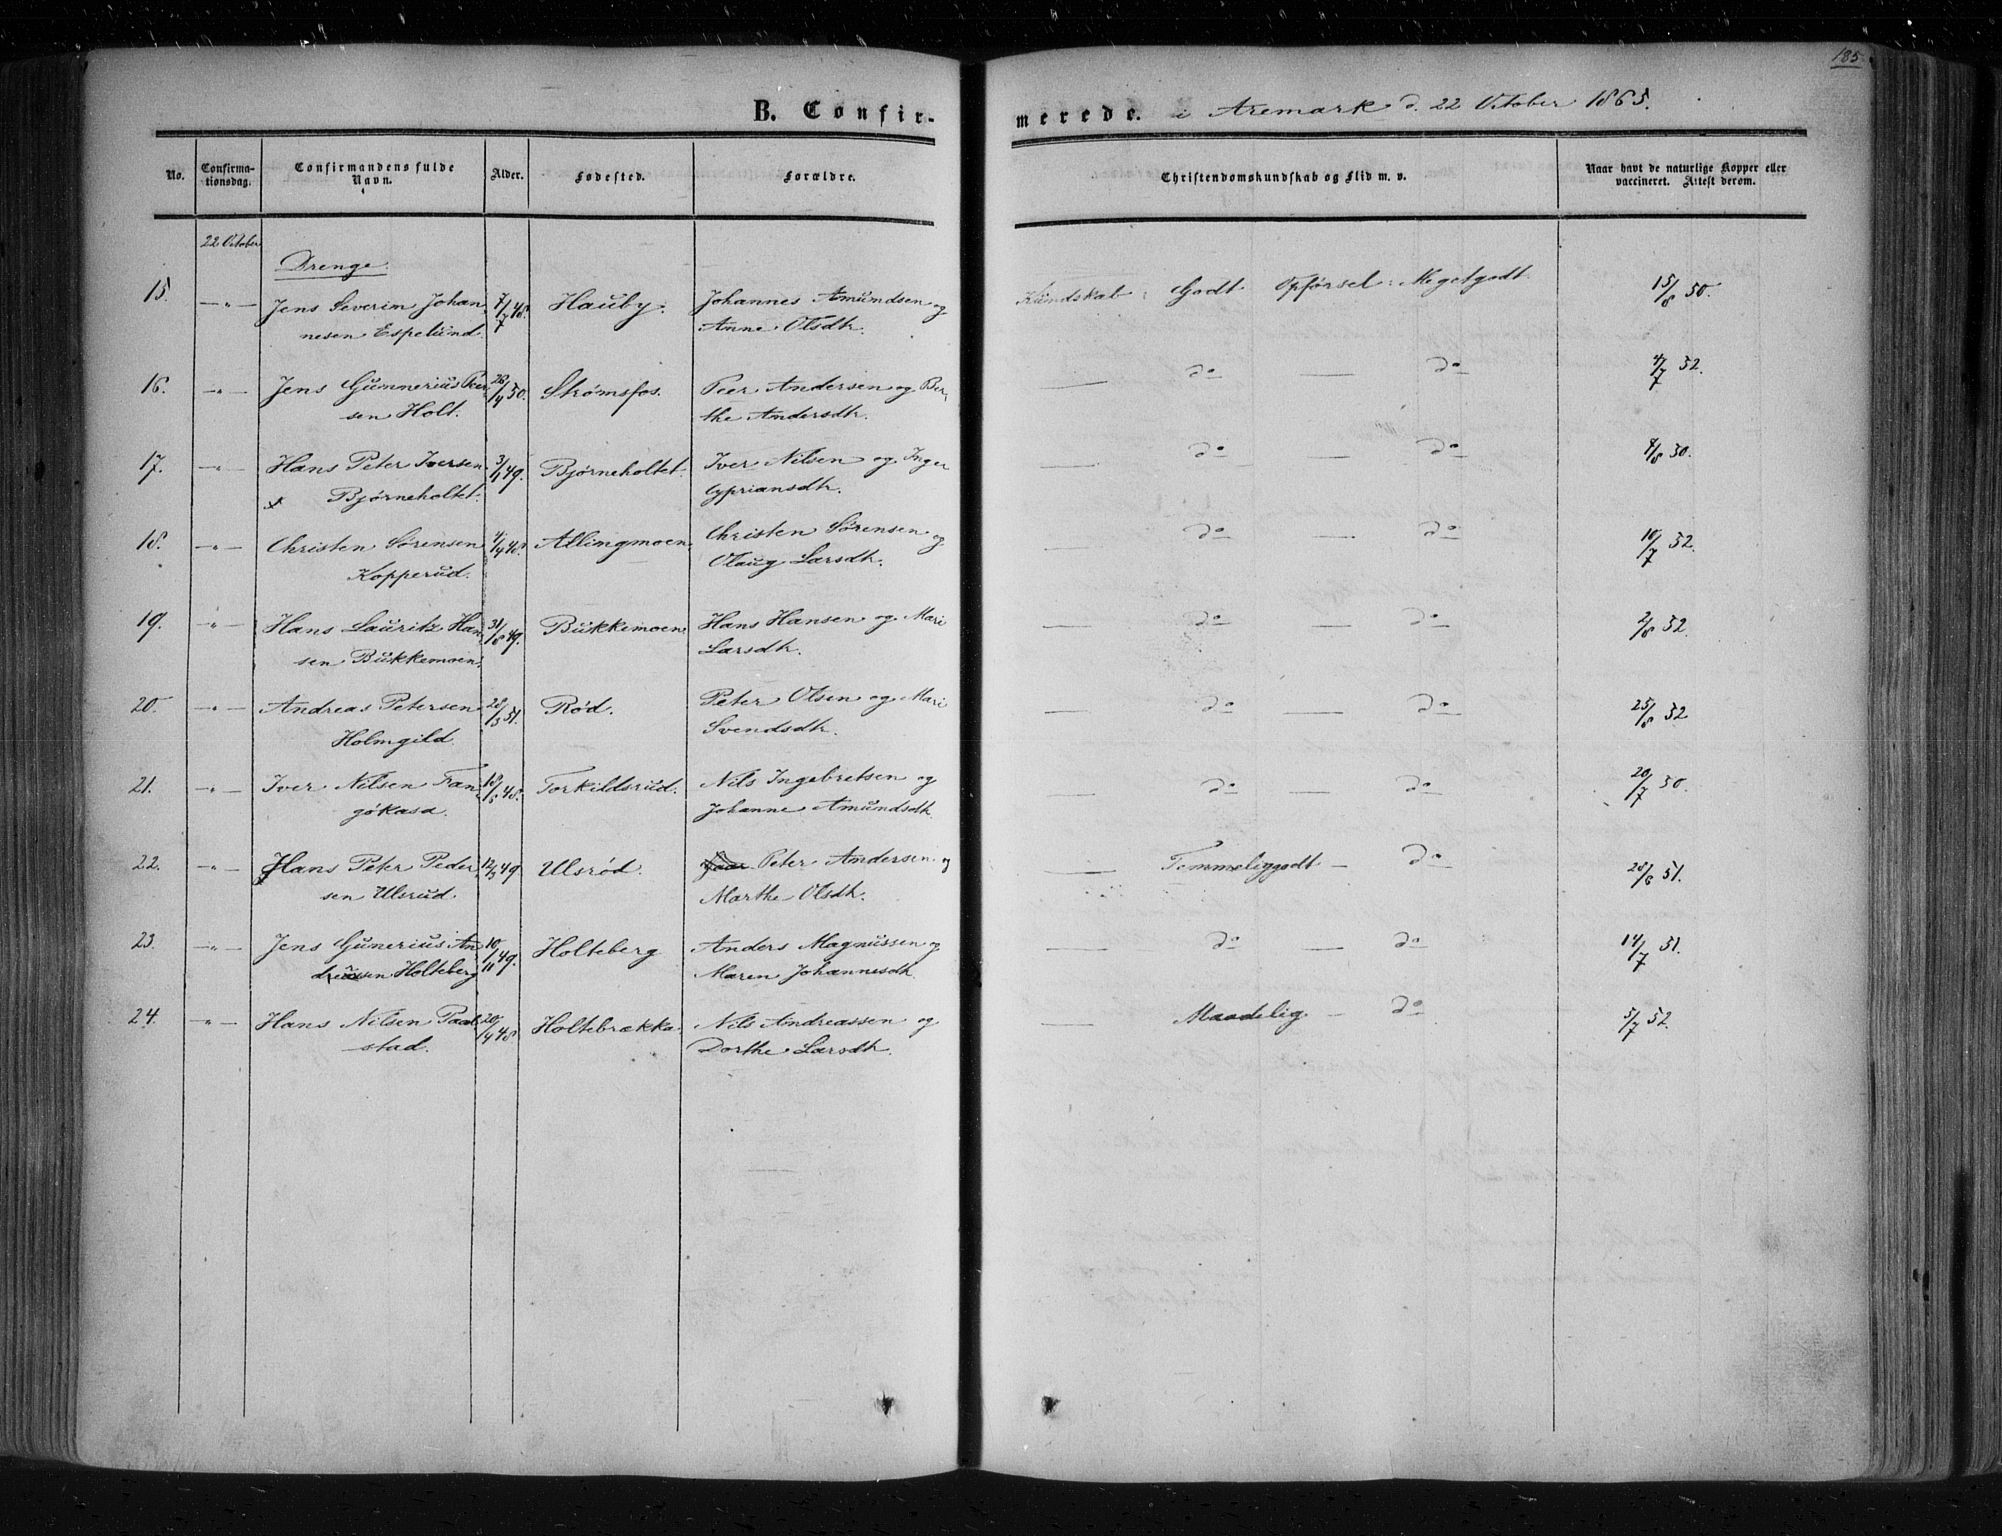 185
B. Confirmerede. i Aremark d. 22 October 1865.
No. Confirmationsdag. Confirmandens fulde Navn. Alder. Fødested. Forældre. Christendomskundskab og Flid m. v. Naar havt de naturlige Kopper eller vaccineret. Attest derom.
22 October
Drenge
15. —"— Jens Severin Johan- 7/7 48. Hauby. Johannes Amundsen og Kundskab: Godt Opførsel: Megetgodt. 15/8 50.
nesen Espelund. Anne Olsdtr.
16. —"— Jens Gunnerius Peer- 26/4 50. Strømsfos. Peer Andersen og Ber- — do — do 4/7 52.
sen Holt. the Andersdtr.
17. —"— Hans Peter Iversen 3/1 49. Bjørneholtet. Iver Nilsen og Inger — do — do 8/8 50.
x Bjørneholtet. Cypriansdtr.
18. —"— Christen Sørensen 4/4 48. Allingmoen Christen Sørensen og — do — do 16/7 52.
Kopperud. Olaug Larsdtr.
19. —"— Hans Lauritz Han- 31/8 49. Bukkemoen Hans Hansen og Mari — do — do 2/8 52.
sen Bukkemoen. Larsdtr.
20. —"— Andreas Petersen 28/3 51. Rød. Peter Olsen og Mari — do — do 25/8 52
Holmgild. Svendsdtr.
21. —"— Iver Nilsen Fan- 18/5 48. Torkildsrud. Nils Ingebretsen og — do — do 20/7 50.
gekasa. Johanne Amundsdtr.
22. —"— Hans Peter Peder- 12/3 49. Ulsrød. Peter Andersen og — Temmeliggodt — do 28/6 51.
sen Ulsrud. Marthe Olsdtr.
23. —"— Jens Gunerius An- 10/11 49. Holteberg Anders Magnussen og — do — do 14/7 51.
dersen Holteberg Maren Johannesdtr.
24. —"— Hans Nilsen Paal- 20/4 48. Holtebrækka. Nils Andreassen og — Maadelig — do 5/7 52.
stad. Dorthe Larsdtr.